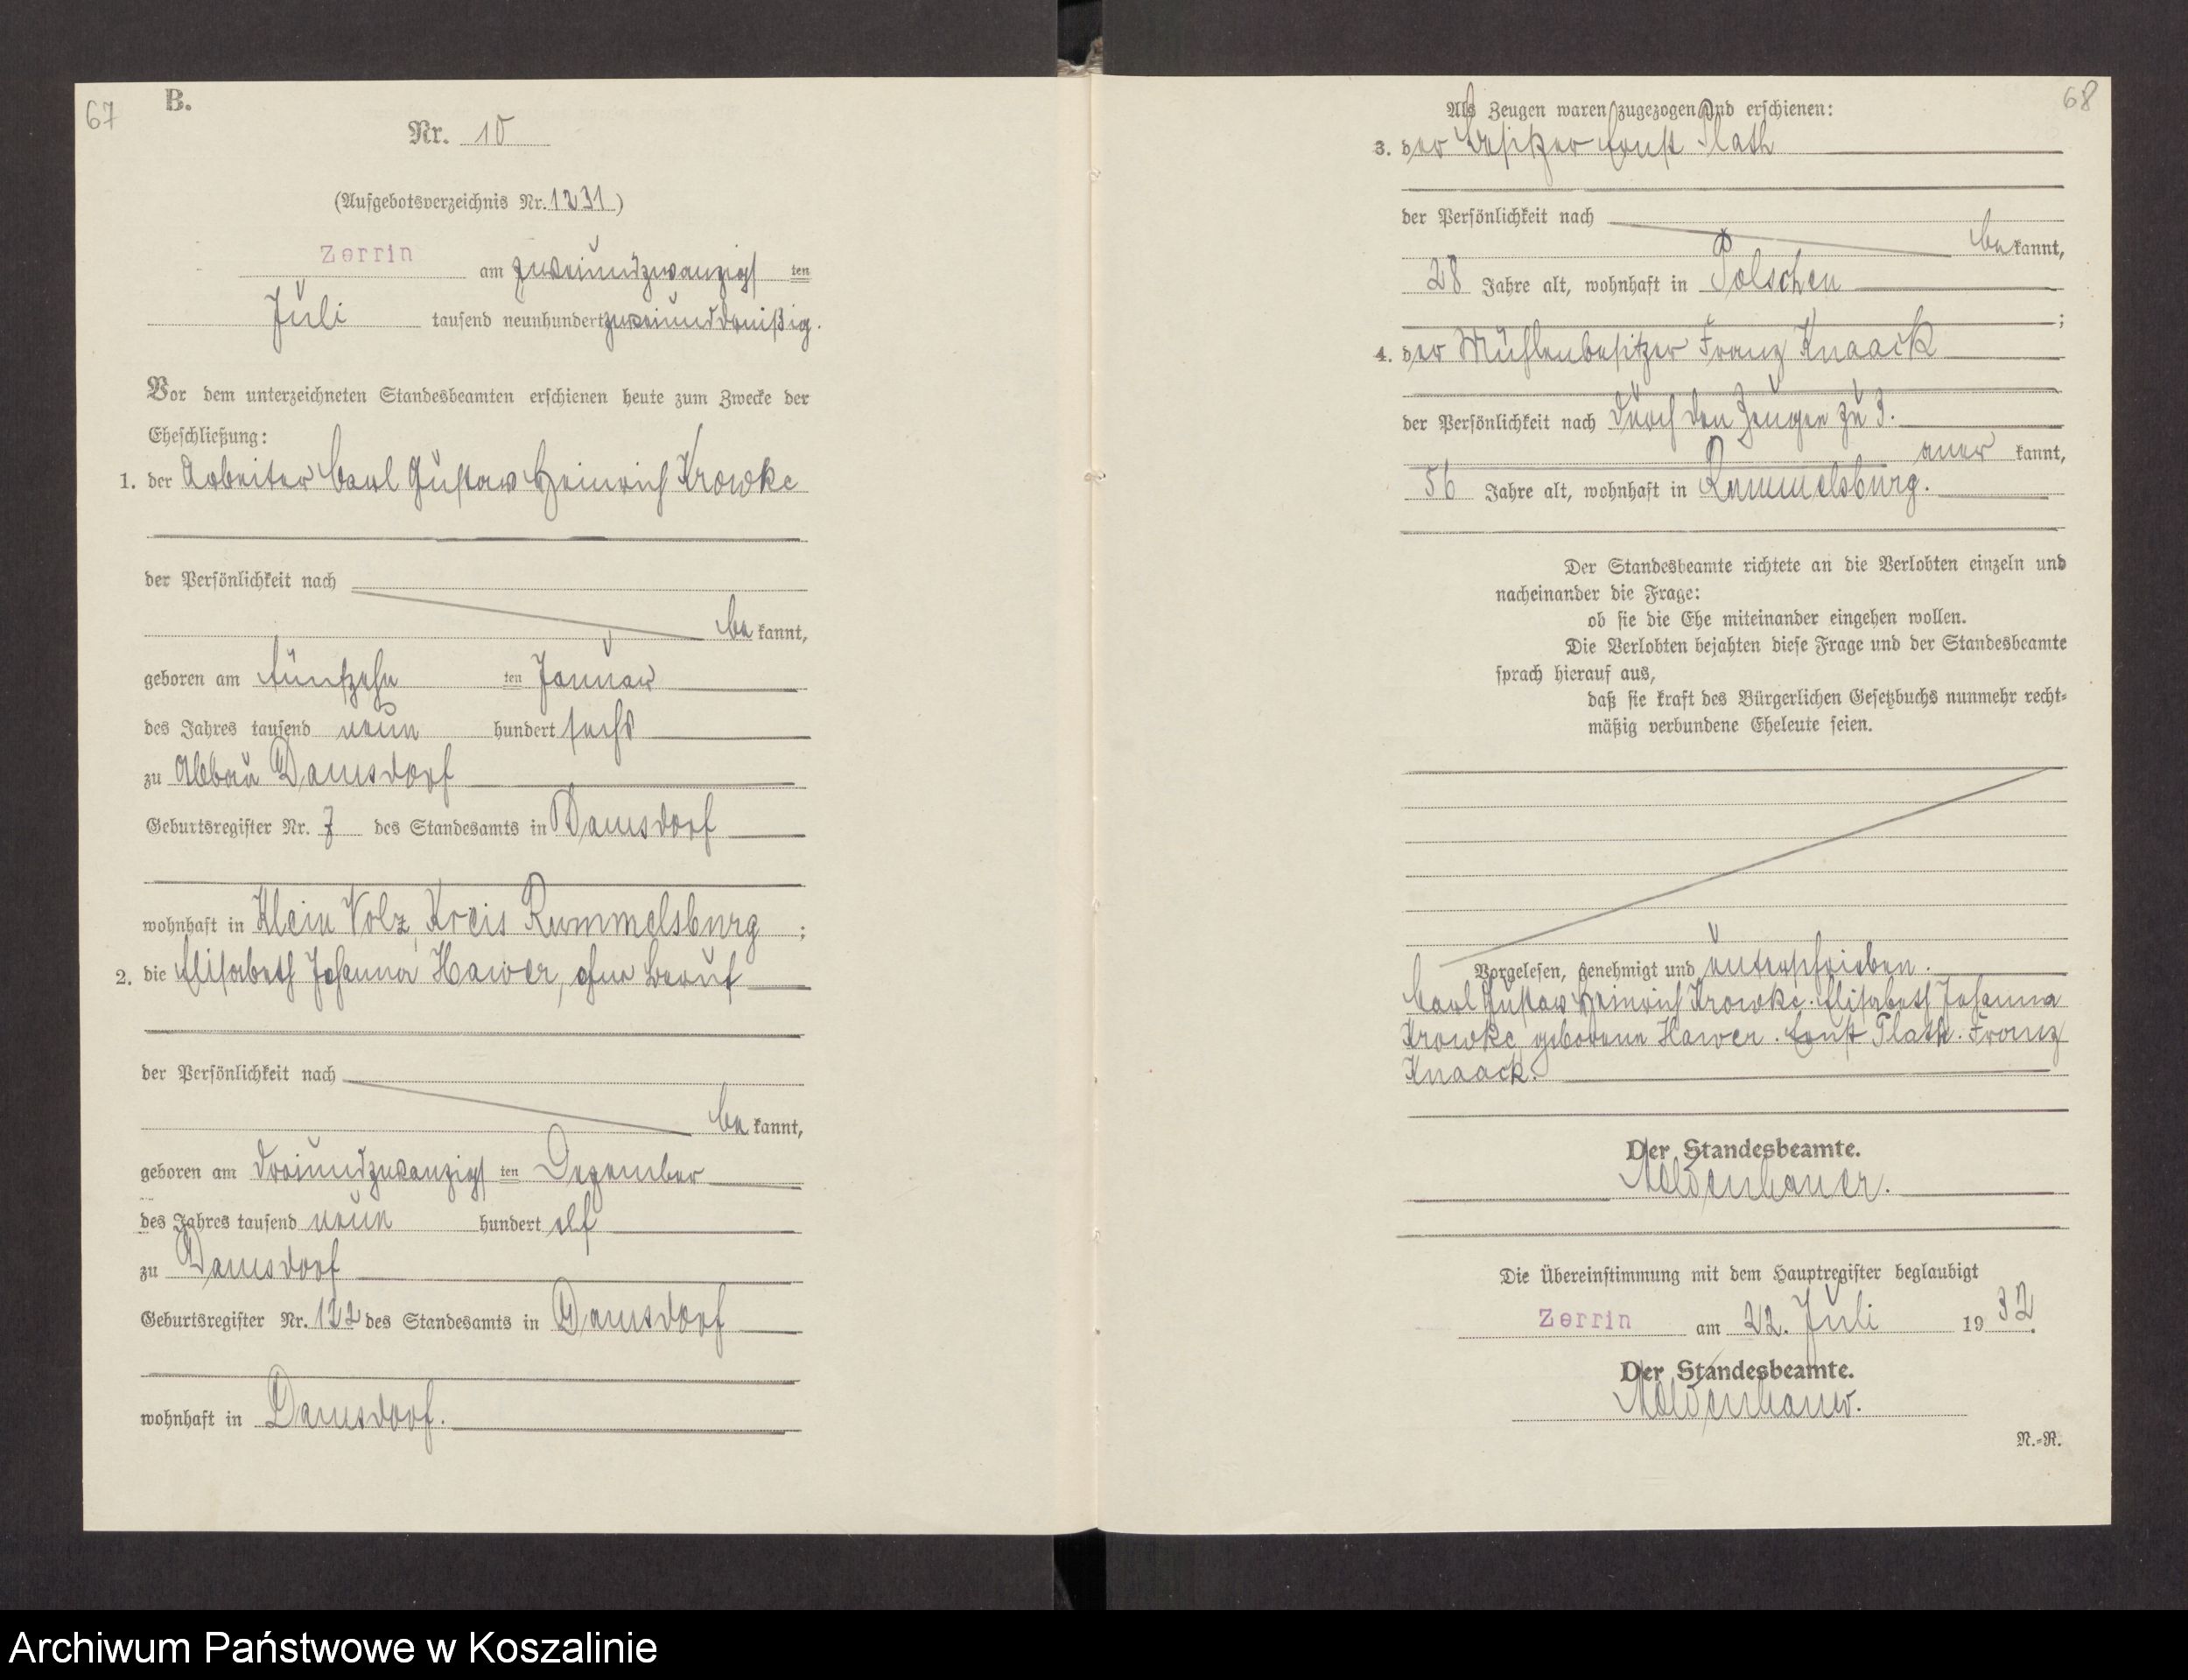 67
B.
Nr. 10
(Aufgebotsverzeichnis Nr. 1231)
Zerrin am zweiundzwanzigsten
Juli tausend neunhundertzweiunddreißig.
Vor dem unterzeichneten Standesbeamten erschienen heute zum Zwecke der
Eheschließung:
1. der Arbeiter Carl Gustav Heinrich Krowke
der Persönlichkeit nach
bekannt,
geboren am fünfzehnten Januar
des Jahres tausend neunhundert sechs
zu Abbau Damsdorf
Geburtsregister Nr. 7 des Standesamts in Damsdorf
wohnhaft in Klein Volz, Kreis Rummelsburg ;
2. die Elisabeth Johanna Hawer, ohne Beruf
der Persönlichkeit nach
bekannt,
geboren am dreiundzwanzigsten Dezember
des Jahres tausend neunhundert elf
zu Damsdorf
Geburtsregister Nr. 122 des Standesamts in Damsdorf
wohnhaft in Damsdorf.
68
Als Zeugen waren zugezogen und erschienen:
3. der Besitzer Ernst Plath
der Persönlichkeit nach
bekannt,
28 Jahre alt, wohnhaft in Polschen
;
4. der Mühlenbesitzer Franz Knaack
der Persönlichkeit nach durch den Zeugen zu 3.
anerkannt,
56 Jahre alt, wohnhaft in Rummelsburg.
Der Standesbeamte richtete an die Verlobten einzeln und
nacheinander die Frage:
ob sie die Ehe miteinander eingehen wollen.
Die Verlobten bejahten diese Frage und der Standesbeamte
sprach hierauf aus,
daß sie kraft des Bürgerlichen Gesetzbuchs nunmehr recht-
mäßig verbundene Eheleute seien.
Vorgelesen, genehmigt und unterschrieben.
Carl Gustav Heinrich Krowke. Elisabeth Johanna
Krowke geborene Hawer. Ernst Plath. Franz
Knaack.
Der Standesbeamte.
Moldenhauer.
Die Übereinstimmung mit dem Hauptregister beglaubigt
Zerrin am 22. Juli 1932.
Der Standesbeamte.
Moldenhauer.
N.-R.
Archiwum Państwowe w Koszalinie